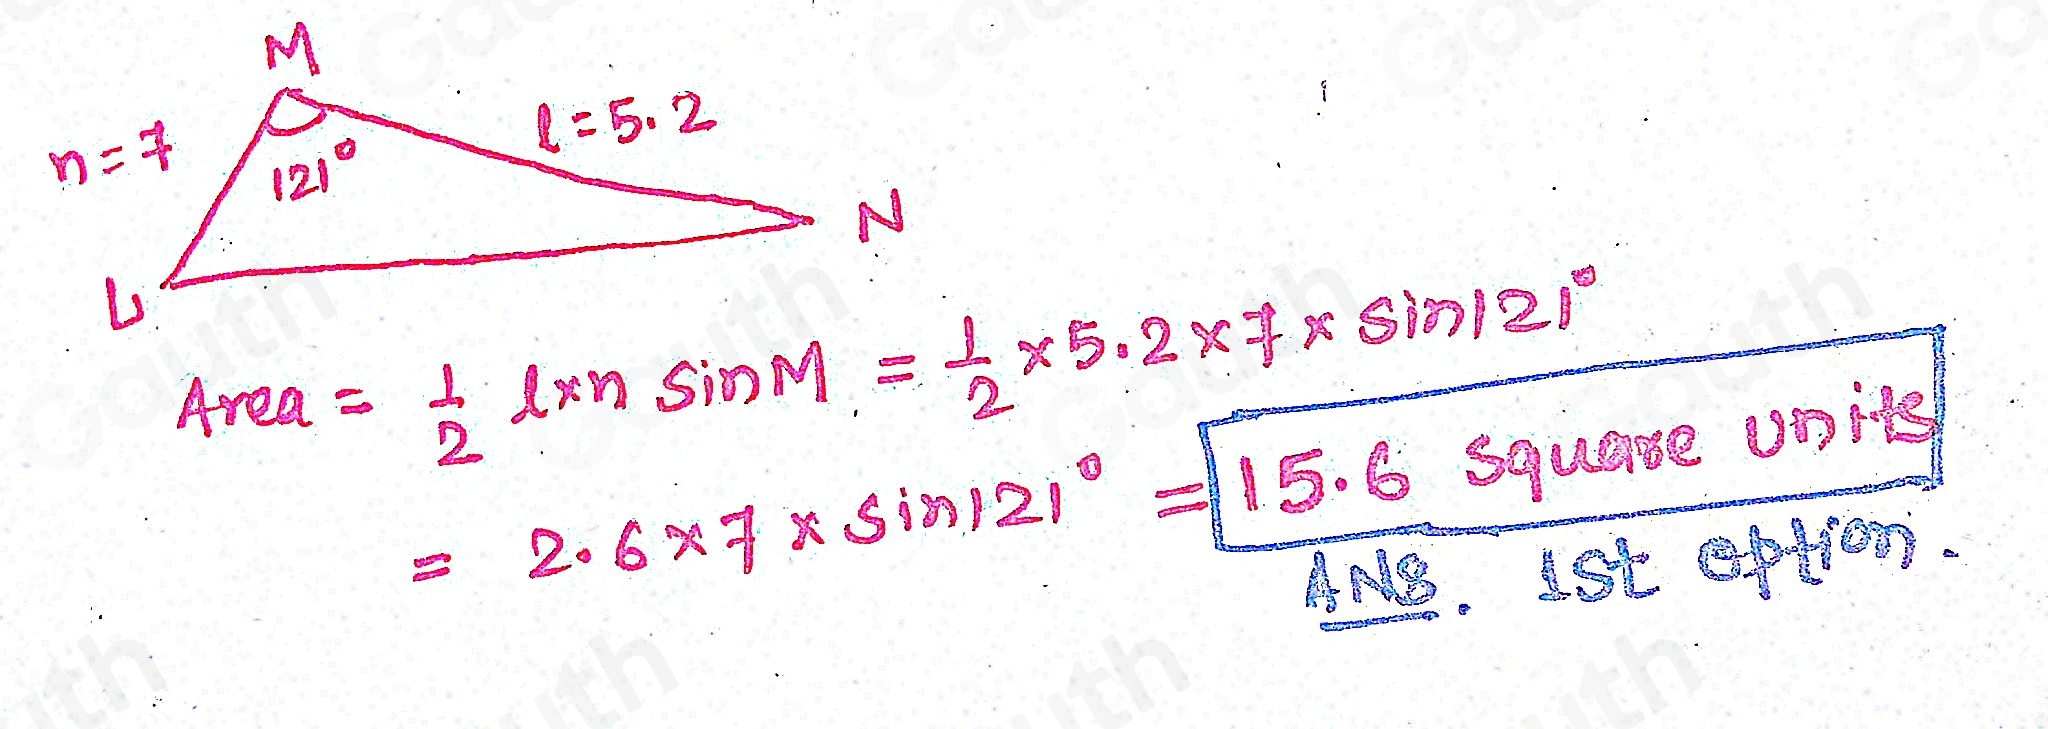 M
n=7
l=5.2
121°
N
L
Area = 1/2 l×n sinM = 1/2 ×5.2×7× sin121°
= 2.6×7× sin121° = 15.6 square units
ANS. 1st option.
Gauth